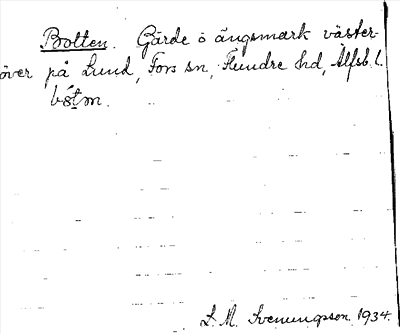 Bolten. Gärde o ängsmark väster-
över på Lund, Fors sn, Flundre hd, Älfsb. l.
L. M. Svenungsson 1934.